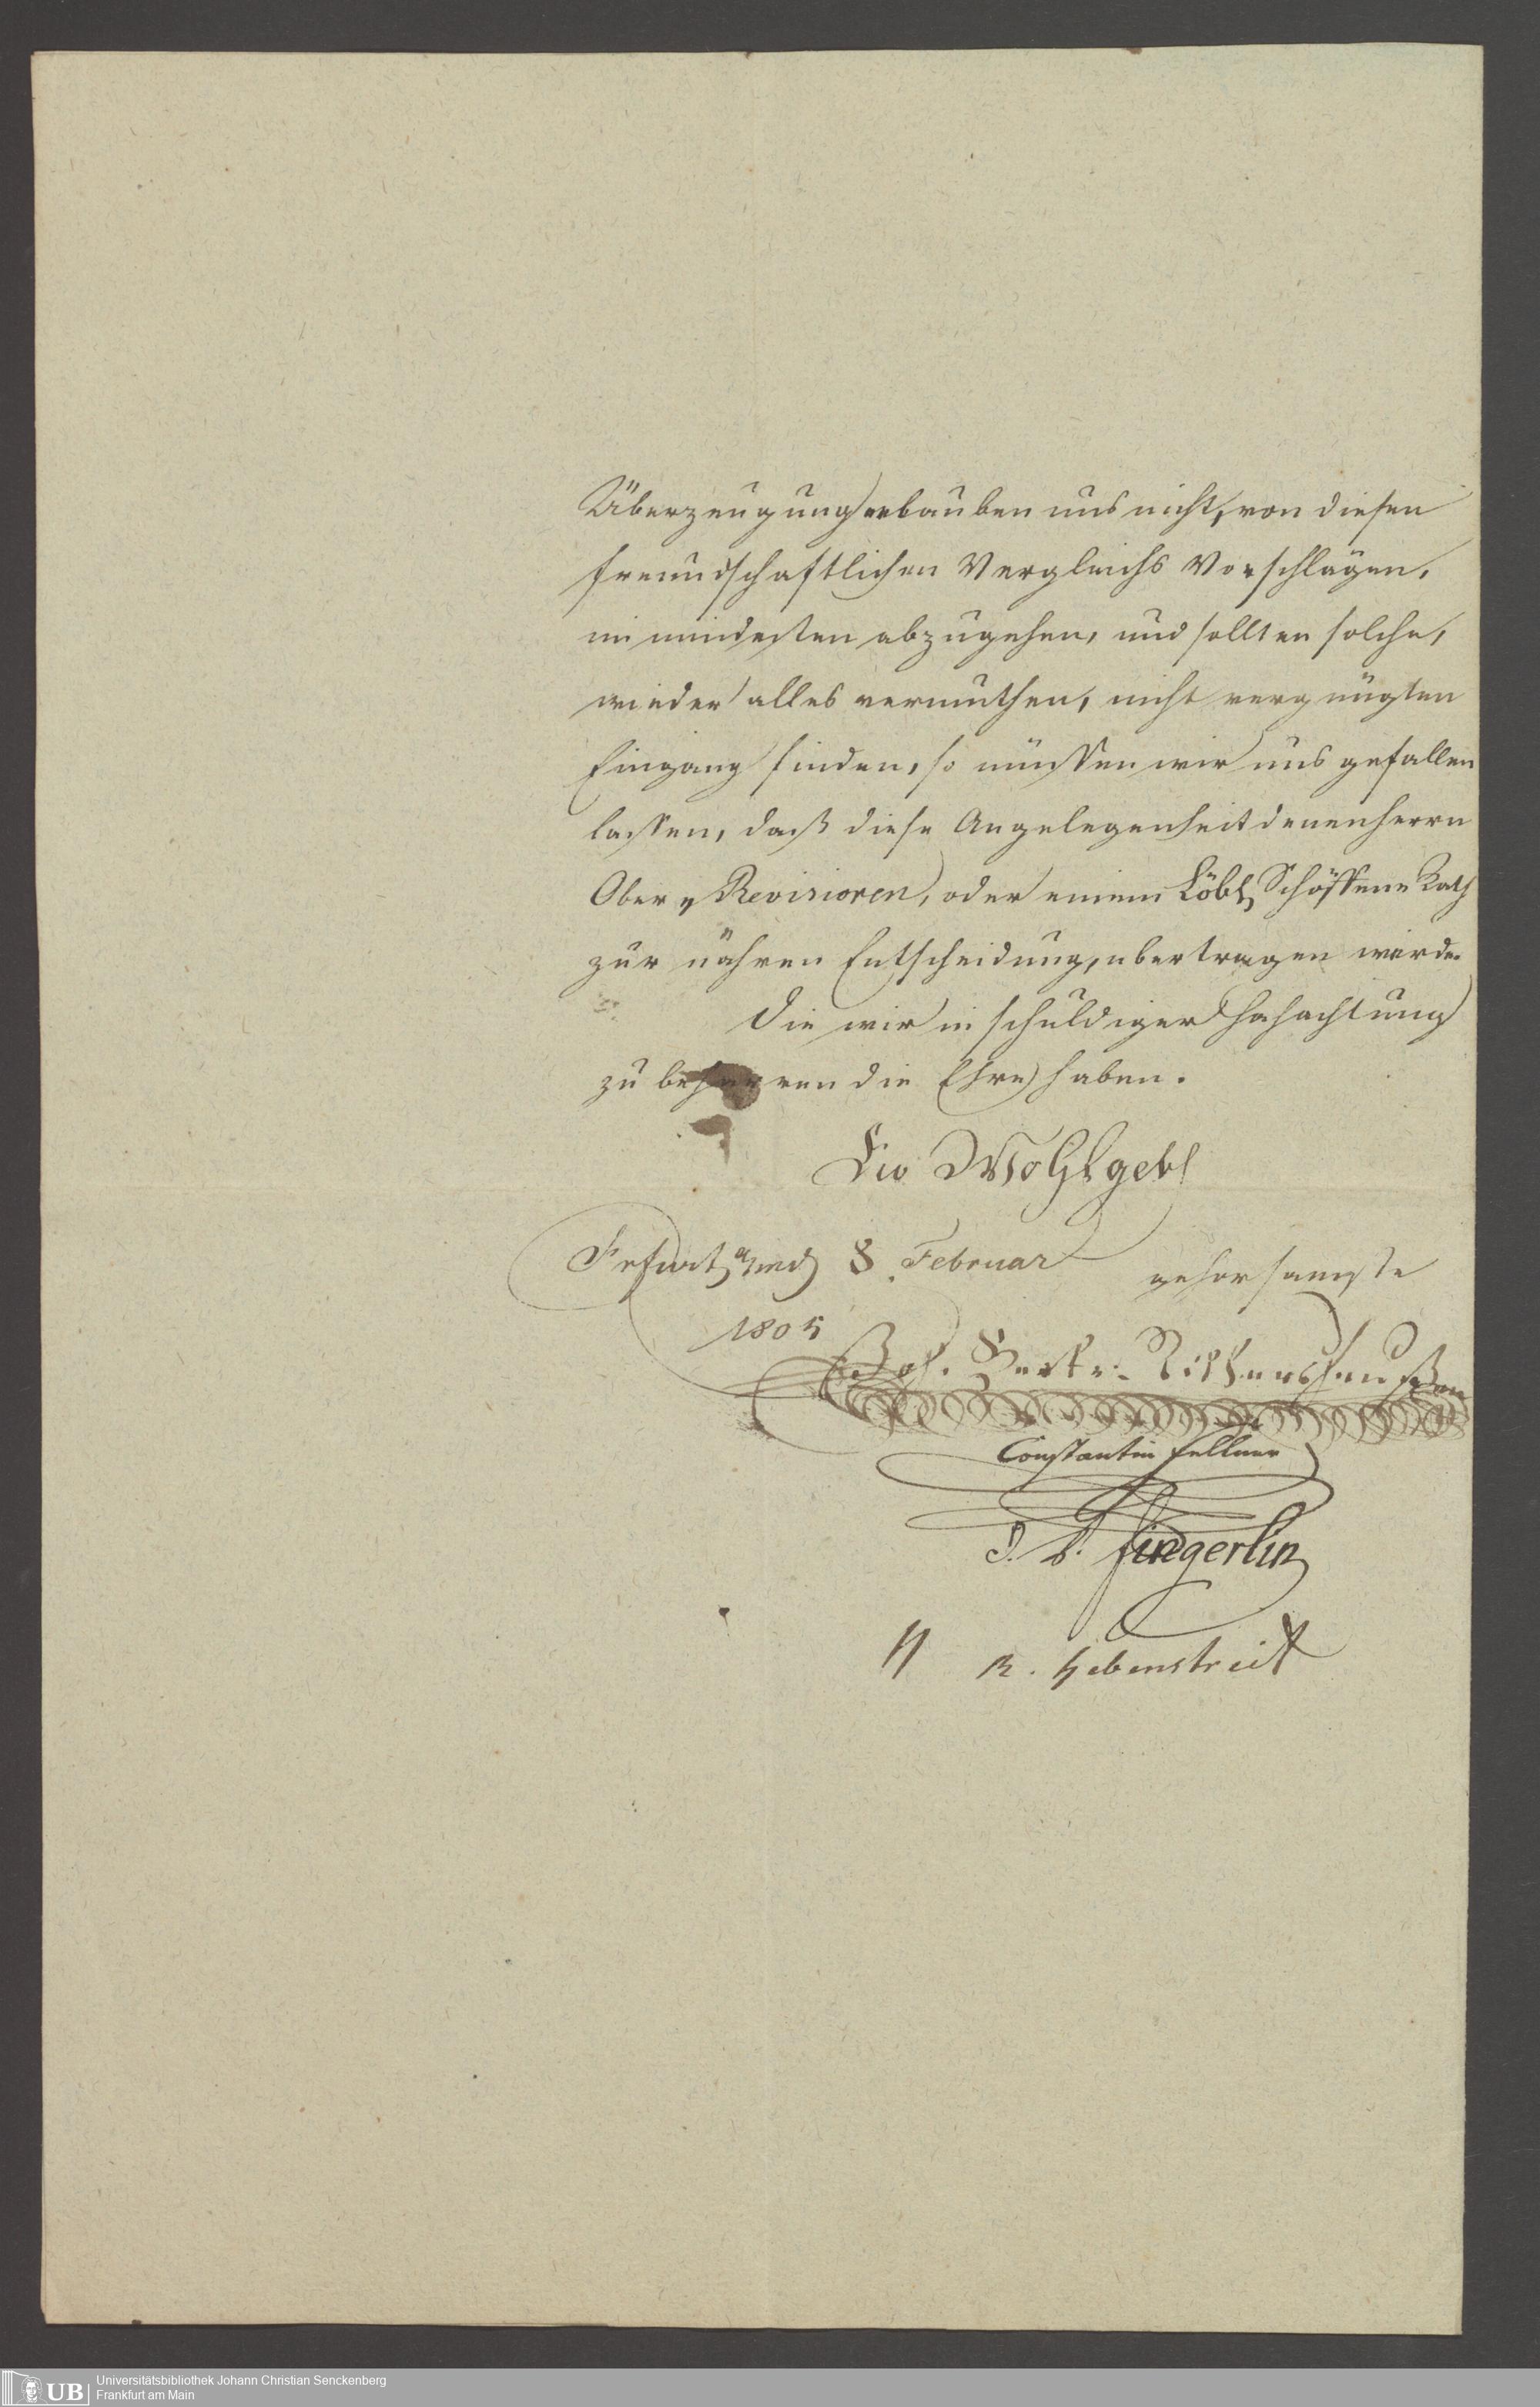 Überzeugung erlauben uns nicht, von diesen
freundschaftlichen Vergleichs Vorschlägen,
im mindesten abzugehen, und sollten solche,
wieder alles vermuthen, nicht vergnügten
Eingang finden, so müssen wir uns gefallen
lassen, daß diese Angelegenheit denen Herrn
Ober Revisioren, oder einem Löbl. Schöffene Rath
zur nähren Entscheidung, übertragen werde.
Die wir in schuldiger Hochachtung
zu beharren die Ehre haben.
Ew Wohlgebl
8. Februar
gehorsamste
1805
Joh.
Constantin Fellner
Fingerlin
H R. Hebenstreit
UB Universitätsbibliothek Johann Christian Senckenberg
Frankfurt am Main